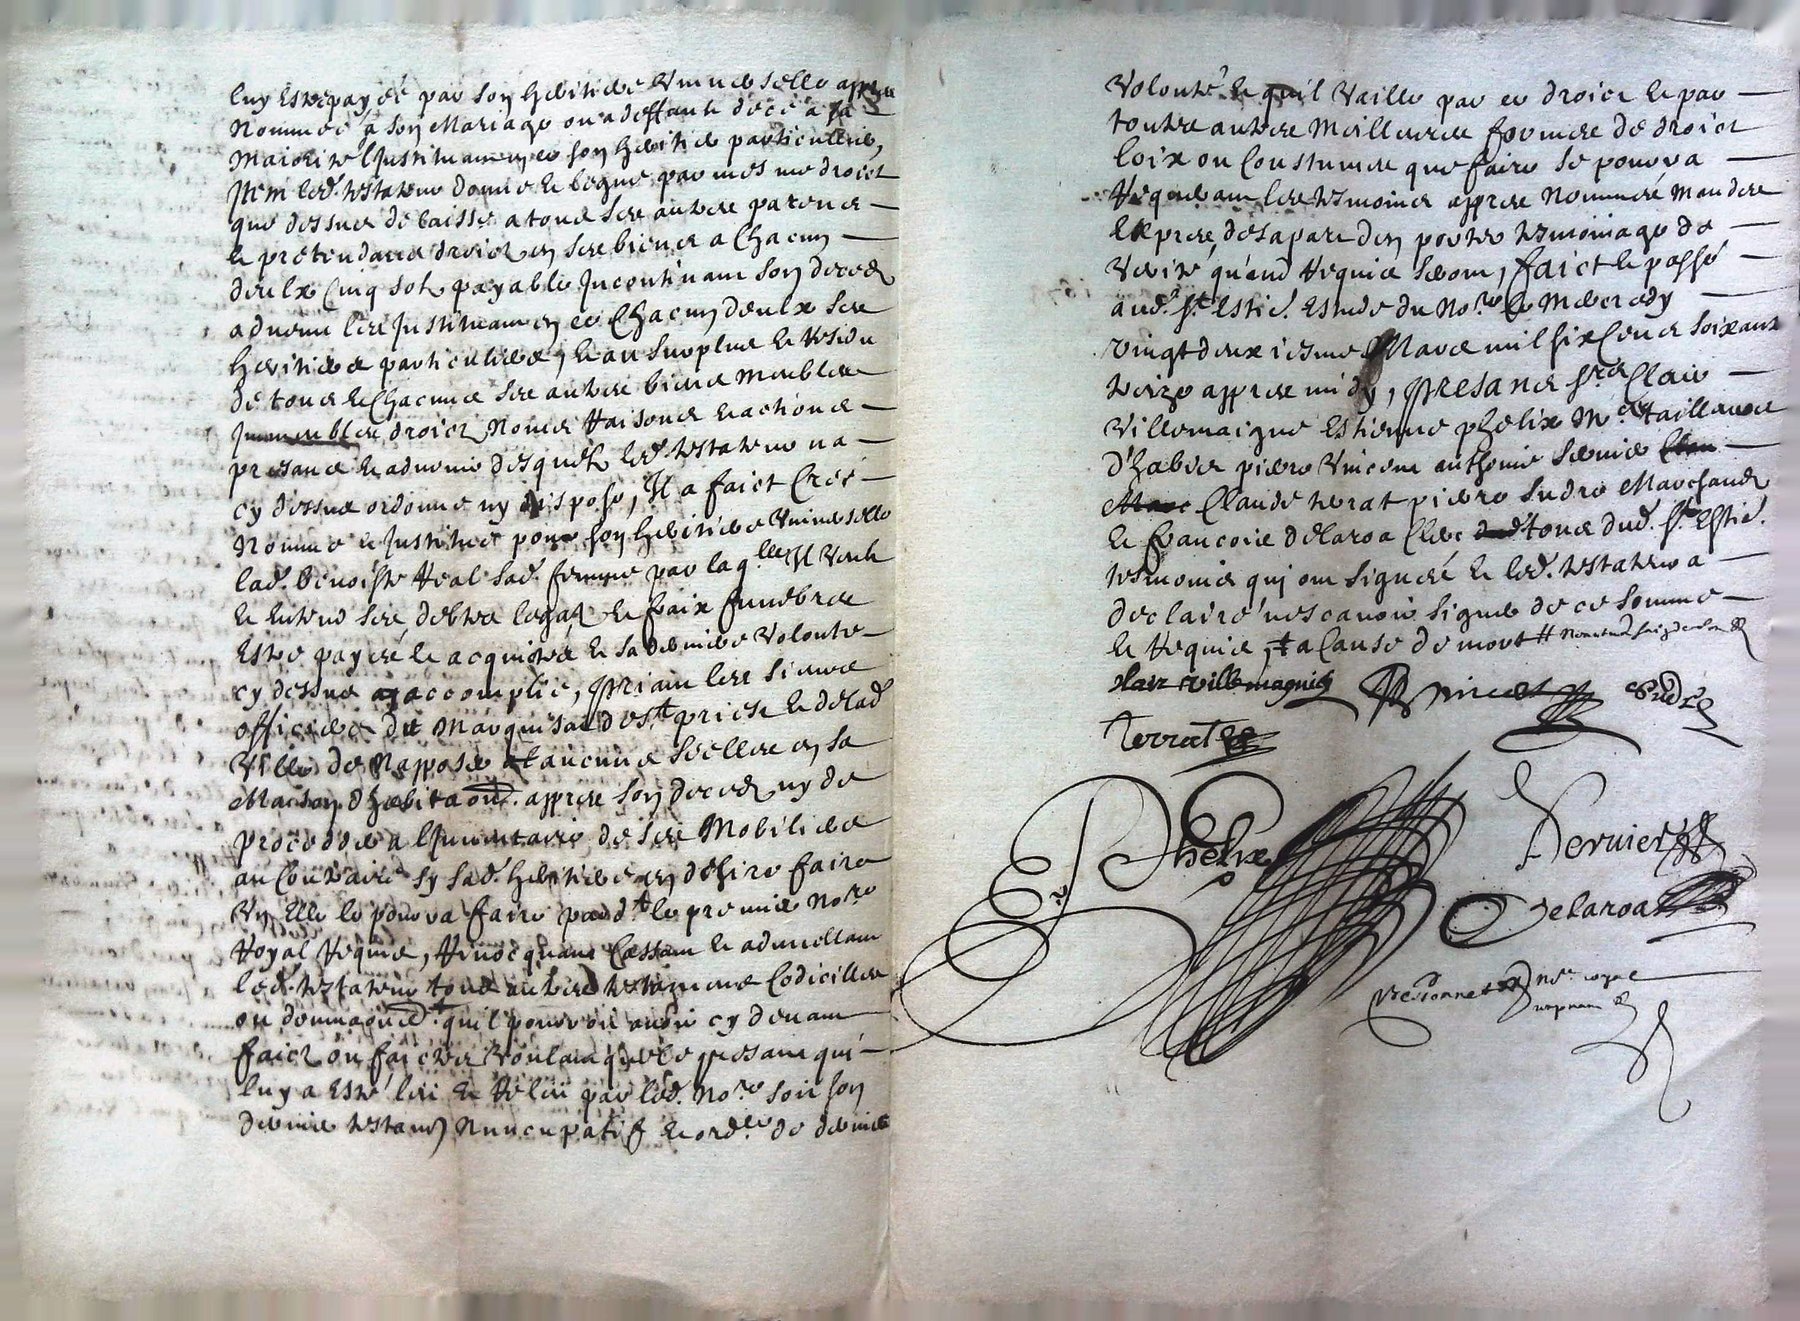 luy estre payée par son heritiere universelle appres
nommée a son mariage ou a deffault d'icé a sa
majorité l'instituant en ce son heritie particuliere,
Item led. testateur donne & legue par mesme droict
que dessus delaisse a tous ses autres parens
& pretendans droict en ses biens a chacun
deulx cinq sols payable incontinant son deced
advenu les instituant en ce chacun deulx ses
heritiers particuliers, & au surplus & residu
de tous & chacuns ses autres biens meubles
immeubles droictz noms raisons & actions
presans & advenir desquelz led. testateur na
cy dessus ordonné ny disposé, Il a faict créé
nommé & institué pour son heritiere universelle
lad. benoiste Real sad. femme par laq.lle Il veult
& entend ses debtes legatz & fraix funebres
estre payés & acquités & sa derniere volonté
cy dessus accomplie, Priant les sieurs
officiers du Marquisat de St priest & de lad
ville de napposer aucuns scelles en sa
Maison d'habitaon. appres son decedz ny de
proceder a l'Inventaire de ses mobiliers
au contraire sy sad. heritiere en desire faire
un Elle le pourra faire par d.t le premier no.re
Royal requis, Revocquant cassant & adnullant
led. testateur tous autres testamens codicilles
ou donnaons qu'il pourroit avoir cy devant
faict ou faictes voulant que le presant qui
luy a esté leu & releu par led. no.re soit son
dernier testamt nuncupatif & ord.re de derniere
Volonté & qu'il vaille par ce droict & par
toutes autres meilleures formes de droict
loix ou coustumes que faire se pourra
Requerant les tesmoins appres nommés mandés
& expres de sa part d'en porter tesmoinage de
verité quand requis seront, faict & passé
aud. St Estie. estude du no.re le mercredy
vingt deuxiesme Mars mil six cens soixante
treize appres midy, Presans srs Clair
Villemaigne Estienne phelix M.es tailleurs
d'habits pierre Vincent anthoine dernier
Claude terrat pierre sudre Marchandz
& francois delaroa clerc tous dud. St Estie.
tesmoins qui ont signés & led. testateur a
declairé ne scavoir signer de ce sommé
& requis, a cause de mort
clair villemagnie Vincent Sudre
Terrat
E. Phelix
Dernier
Delaroa
no.re royal